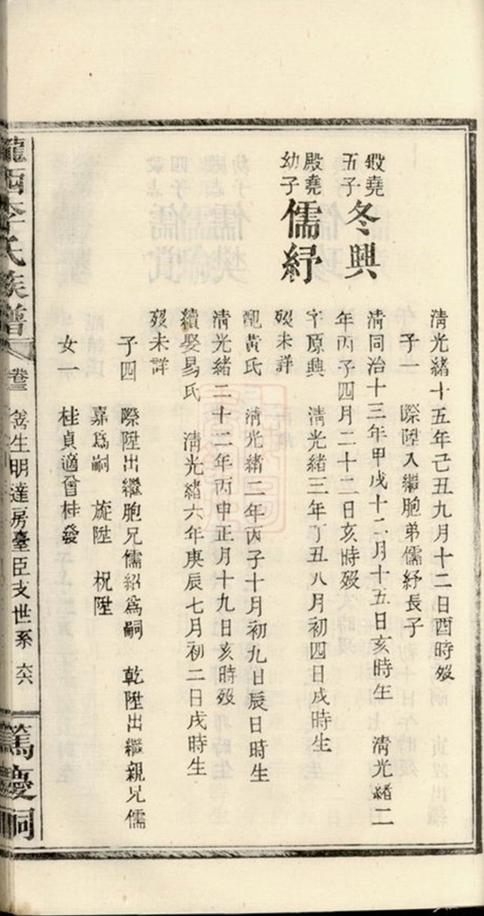 清光緒十五年己丑九月十二日酉時歿
子一　際陞入繼胞弟儒紓長子
殿堯五子　冬興
清同治十三年甲戌十二月十五日亥時生　清光緒二
年丙子四月二十二日亥時歿
殿堯幼子　儒紓
字原興　清光緒三年丁丑八月初四日戌時生
歿未詳
配黃氏　清光緒二年丙子十月初九日辰日時生
清光緒二十二年丙申正月十九日亥時歿
續娶易氏　清光緒六年庚辰七月初二日戌時生
歿未詳
子四　際陞出繼胞兄儒紹爲嗣　乾陞出繼親兄儒
嘉爲嗣　旋陞　祝陞
女一　桂貞適曾桂發
隴西李氏族譜　卷三　生明達房臺臣支世系　六六　篤慶祠